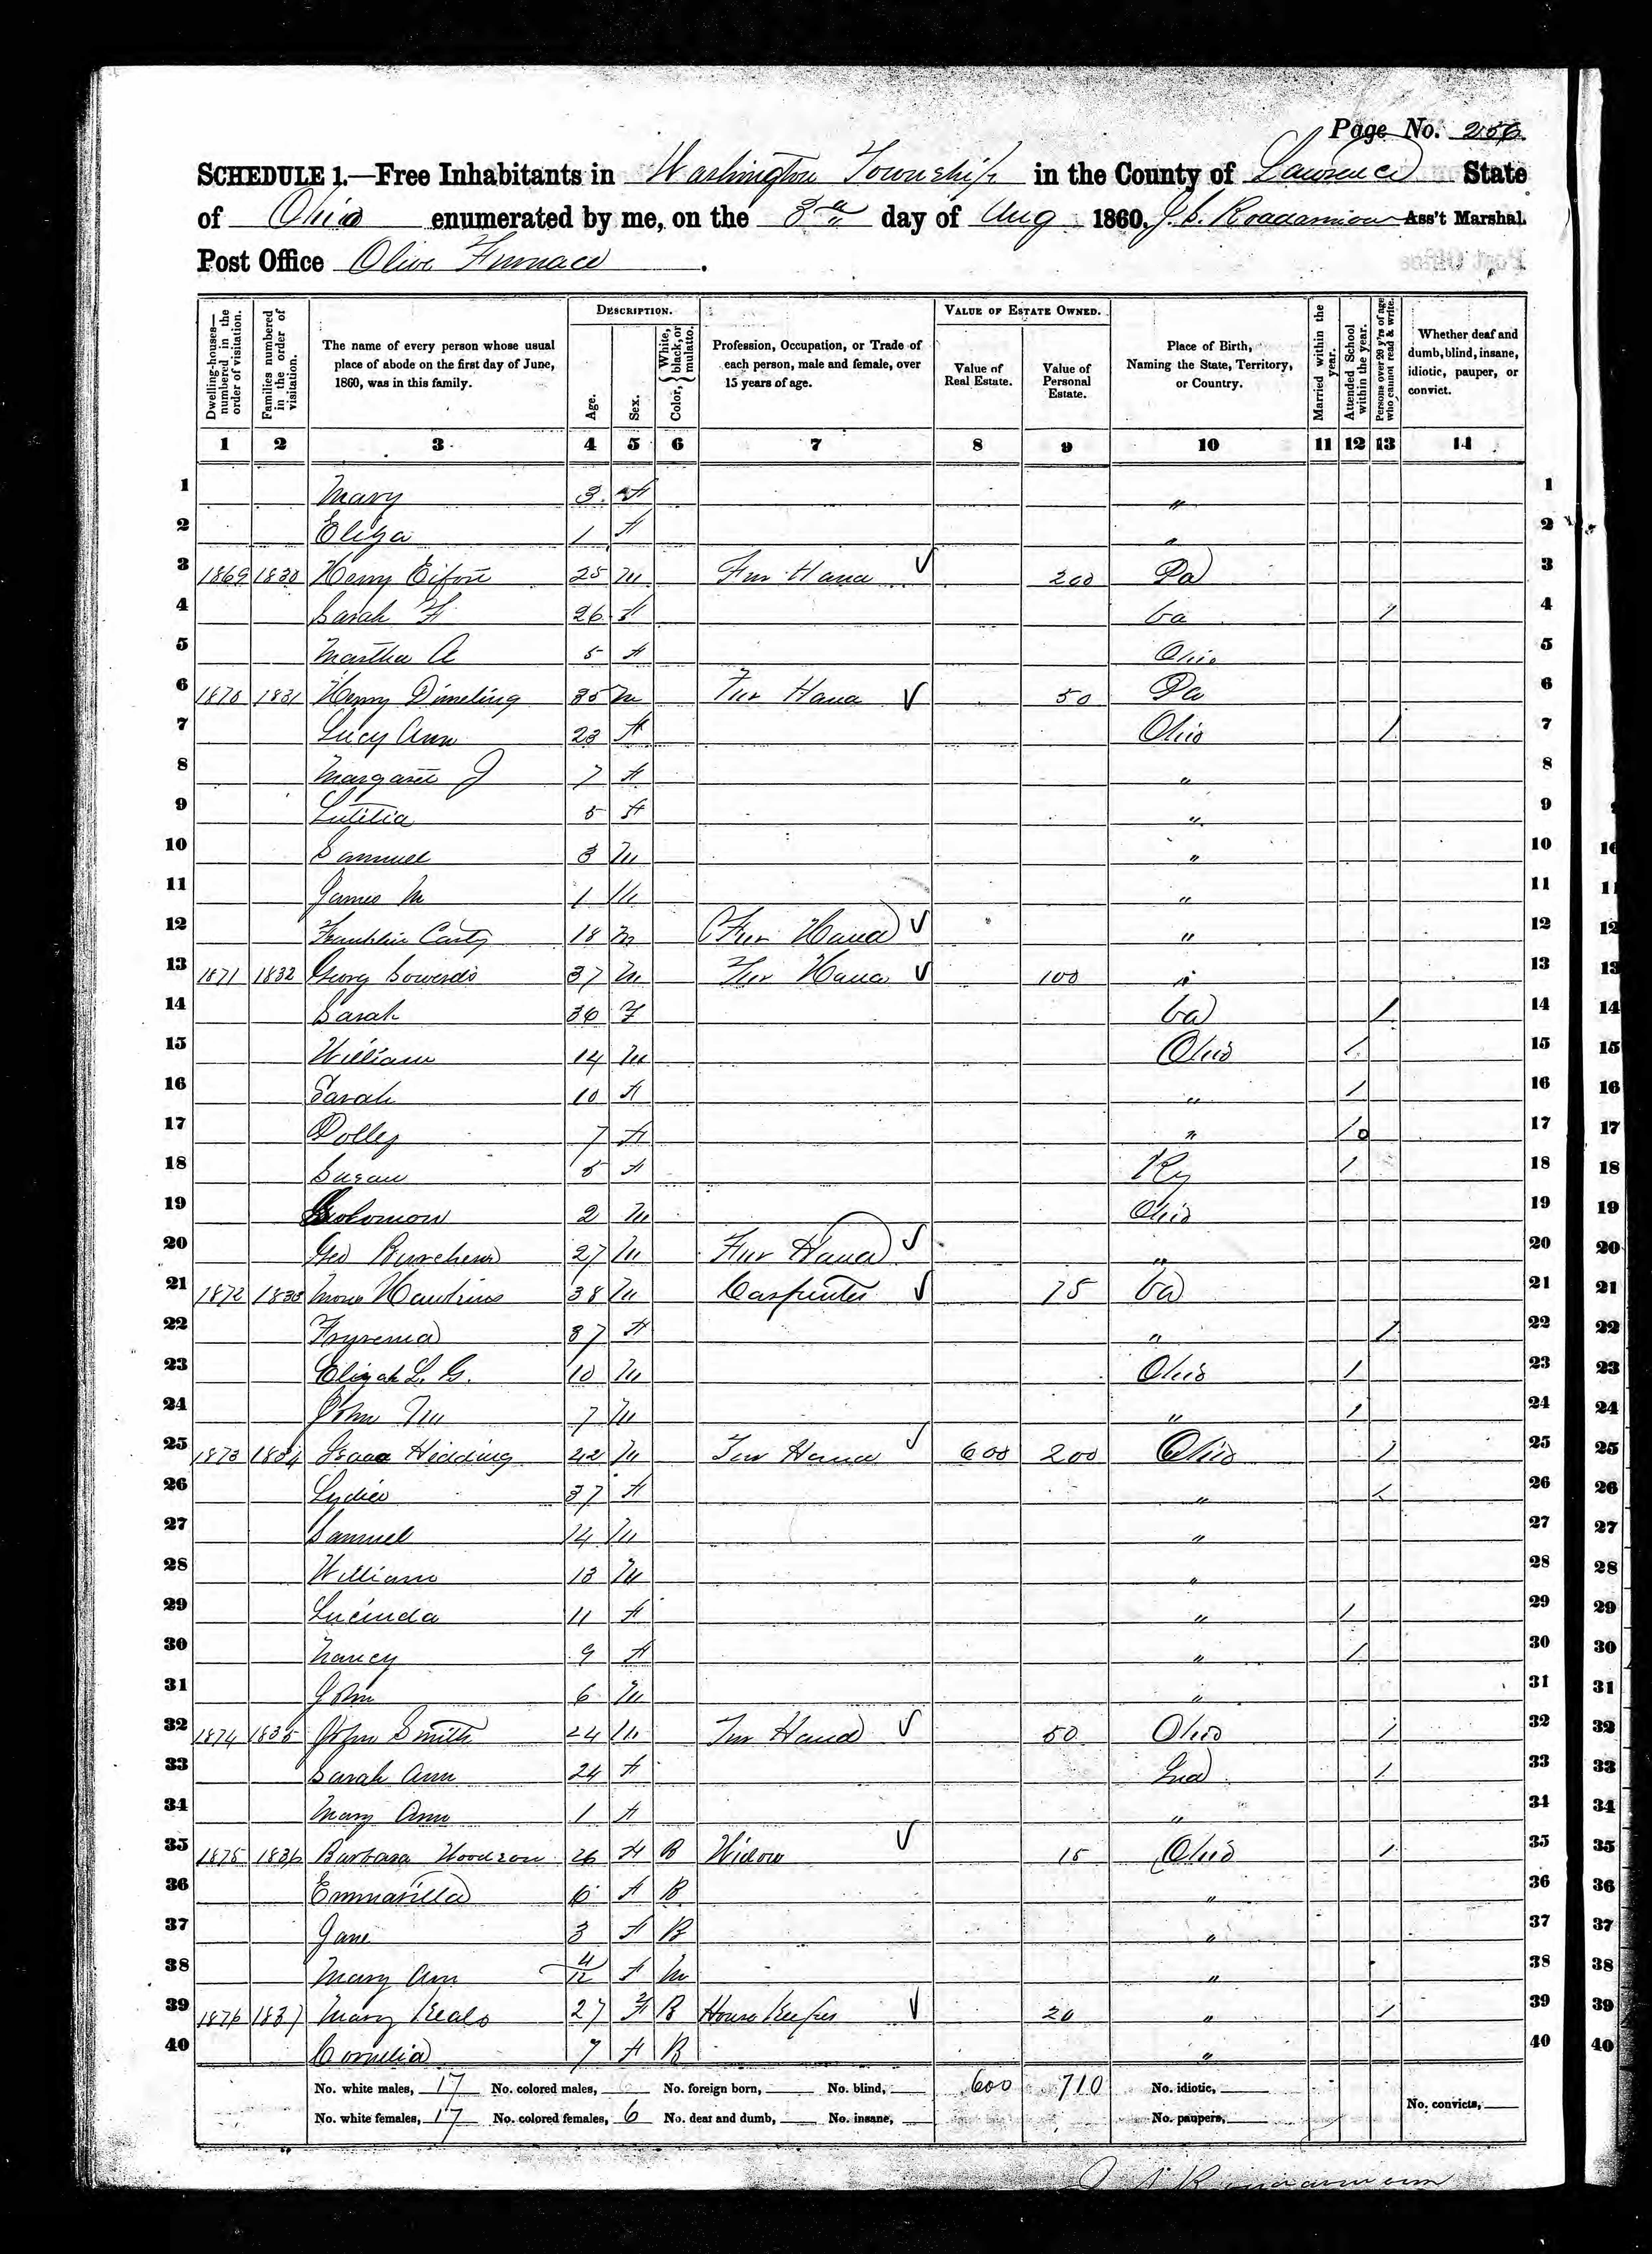 Page No. 256
SCHEDULE 1.—Free Inhabitants in Washington Township in the County of Lawrence State
of Ohio enumerated by me, on the day of Aug 1860. Ass't Marshal.
Post Office Olive Furnace
Dwelling-houses—numbered in the order of visitation.
Families numbered in the order of visitation.
The name of every person whose usual place of abode on the first day of June, 1860, was in this family.
DESCRIPTION.
Age.
Sex.
Color, White, black, or mulatto.
Profession, Occupation, or Trade of each person, male and female, over 15 years of age.
VALUE OF ESTATE OWNED.
Value of Real Estate.
Value of Personal Estate.
Place of Birth, Naming the State, Territory, or Country.
Married within the year.
Attended School within the year.
Persons over 20 y'rs of age who cannot read & write.
Whether deaf and dumb, blind, insane, idiotic, pauper, or convict.
1 2 3 4 5 6 7 8 9 10 11 12 13 14
1 Mary 3 F " 1
2 Eliza 1 F " 2
3 1869 1830 Henry 25 M Fur Hand 200 Pa 3
4 Sarah F 26 F Va / 4
5 Martha A 5 F Ohio 5
6 1870 1831 Henry Dimeling 35 M Fur Hand 50 Pa 6
7 Lucy Ann 23 F Ohio / 7
8 Margaret J 7 F " 8
9 Lutitia 5 F " 9
10 Samuel 3 M " 10
11 James M 1 M " 11
12 Franklin Carty 18 M Fur Hand " 12
13 1871 1832 Georg Sowerds 37 M Fur Hand 100 " 13
14 Sarah 36 F Va / 14
15 William 14 M Ohio / 15
16 Sarah 10 F " / 16
17 Dolley 7 F " / 17
18 Susan 5 F Ky / 18
19 Solomon 2 M Ohio 19
20 Geo 27 M Fur Hand " 20
21 1872 1833 Hawkins 38 M Carpenter 75 Va 21
22 37 F " / 22
23 Elijah L. G. 10 M Ohio / 23
24 John M 7 M " / 24
25 1873 1834 Isaac Hidding 42 M Fur Hand 600 200 Ohio / 25
26 Lydia 37 F " / 26
27 Samuel 14 M " 27
28 William 13 M " 28
29 Lucinda 11 F " / 29
30 Nancy 9 F " / 30
31 John 6 M " 31
32 1874 1835 John Smith 24 M Fur Hand 50 Ohio / 32
33 Sarah Ann 24 F Ind / 33
34 Mary Ann 1 F " 34
35 1875 1836 Barbara Woodson 26 F B Widow 15 Ohio / 35
36 Emmarilla 6 F B " 36
37 Jane 3 F B " 37
38 Mary Ann 4/12 F M " 38
39 1876 1837 Mary Beals 27 F B House Keeper 20 " / 39
40 Cornelia 7 F B " 40
No. white males, 17 No. colored males, No. foreign born, No. blind, 600 710 No. idiotic,
No. white females, 17 No. colored females, 6 No. deaf and dumb, No. insane, No. paupers, No. convicts,